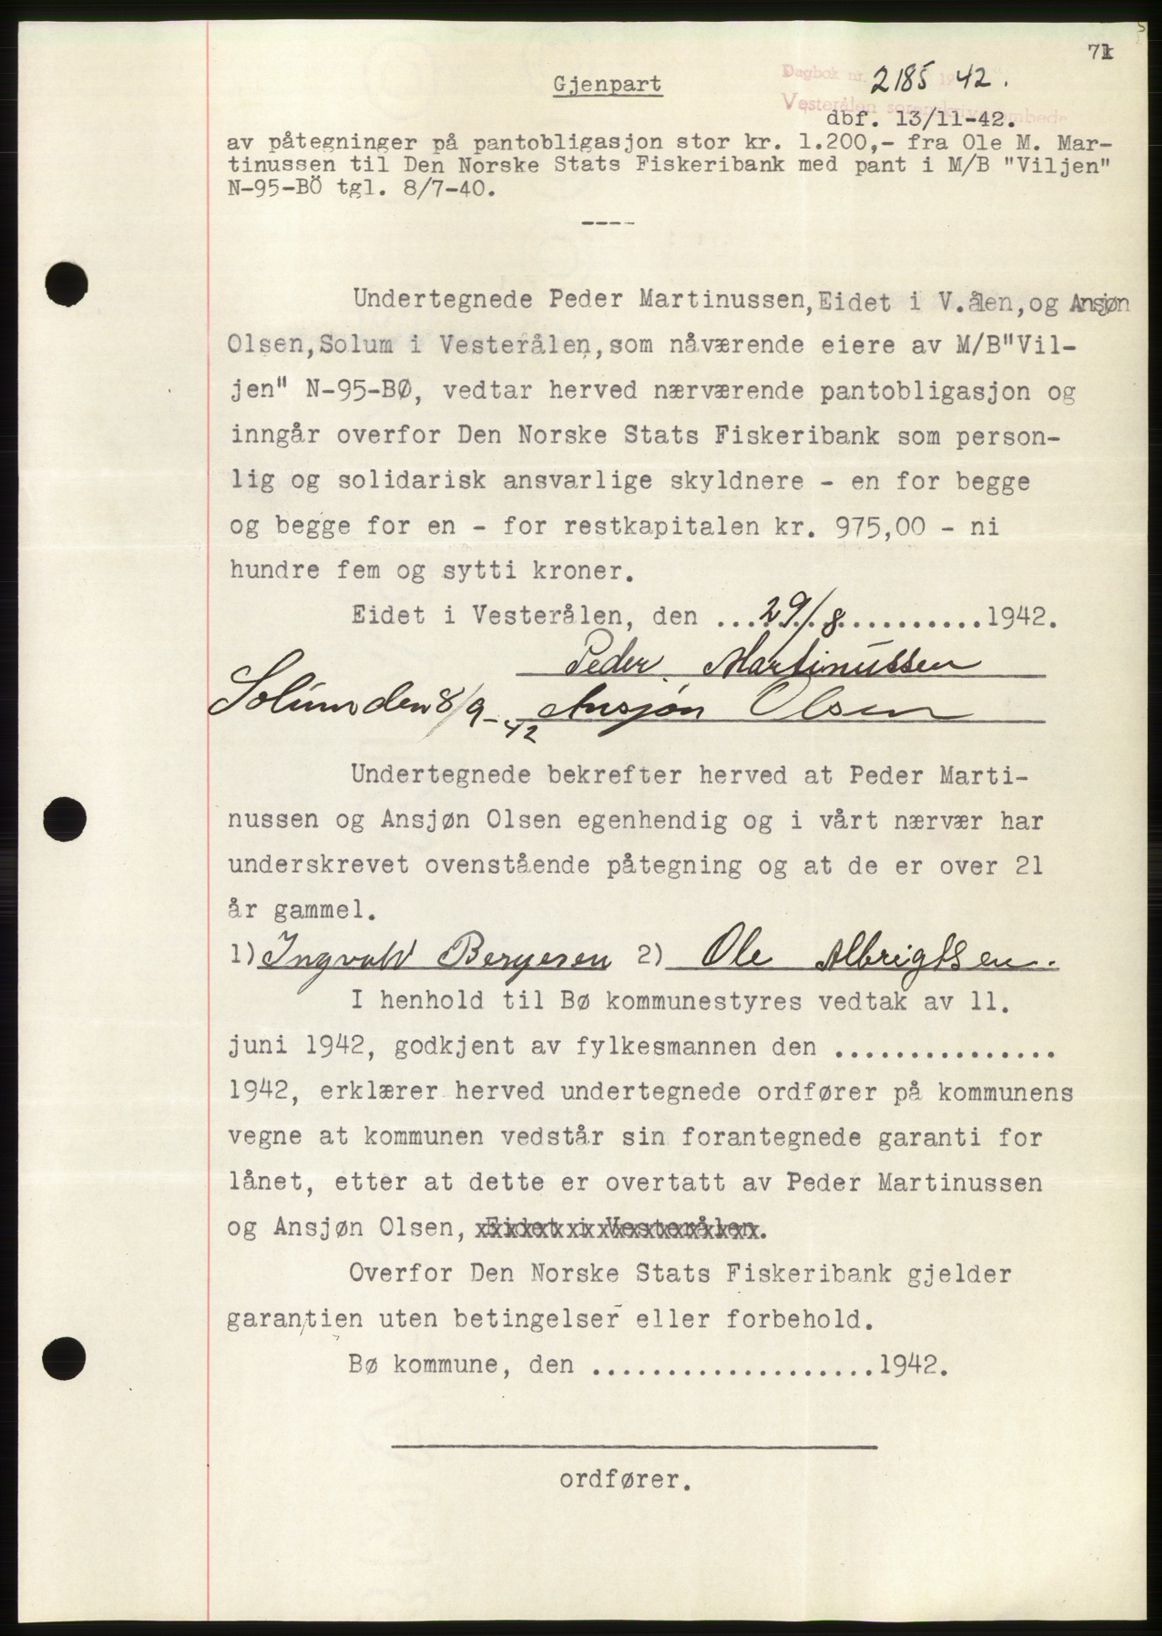 71
Dagbok nr. 2185 19 42.
Gjenpart
Vesterålen sorenskriverembede
dbf. 13/11-42.
av påtegninger på pantobligasjon stor kr. 1.200,- fra Ole M. Mar-
tinussen til Den Norske Stats Fiskeribank med pant i M/B "Viljen"
N-95-BÖ tgl. 8/7-40.
----
Undertegnede Peder Martinussen, Eidet i V.ålen, og Ansjøn
Olsen, Solum i Vesterålen, som nåværende eiere av M/B"Vil-
jen" N-95-BØ, vedtar herved nærværende pantobligasjon og
inngår overfor Den Norske Stats Fiskeribank som person-
lig og solidarisk ansvarlige skyldnere - en for begge
og begge for en - for restkapitalen kr. 975,00 - ni
hundre fem og sytti kroner.
Eidet i Vesterålen, den ...29/8..........1942.
Peder Martinussen
Solum den 8/9-42 Ansjøn Olsen
Undertegnede bekrefter herved at Peder Marti-
nussen og Ansjøn Olsen egenhendig og i vårt nærvær har
underskrevet ovenstående påtegning og at de er over 21
år gammel.
1) Ingvald Bergersen 2) Ole Albrigtsen.
I henhold til Bø kommunestyres vedtak av 11.
juni 1942, godkjent av fylkesmannen den ...............
1942, erklærer herved undertegnede ordfører på kommunens
vegne at kommunen vedstår sin forantegnede garanti for
lånet, etter at dette er overtatt av Peder Martinussen
og Ansjøn Olsen, Eidet i Vesterålen.
Overfor Den Norske Stats Fiskeribank gjelder
garantien uten betingelser eller forbehold.
Bø kommune, den ...................1942.
ordfører.